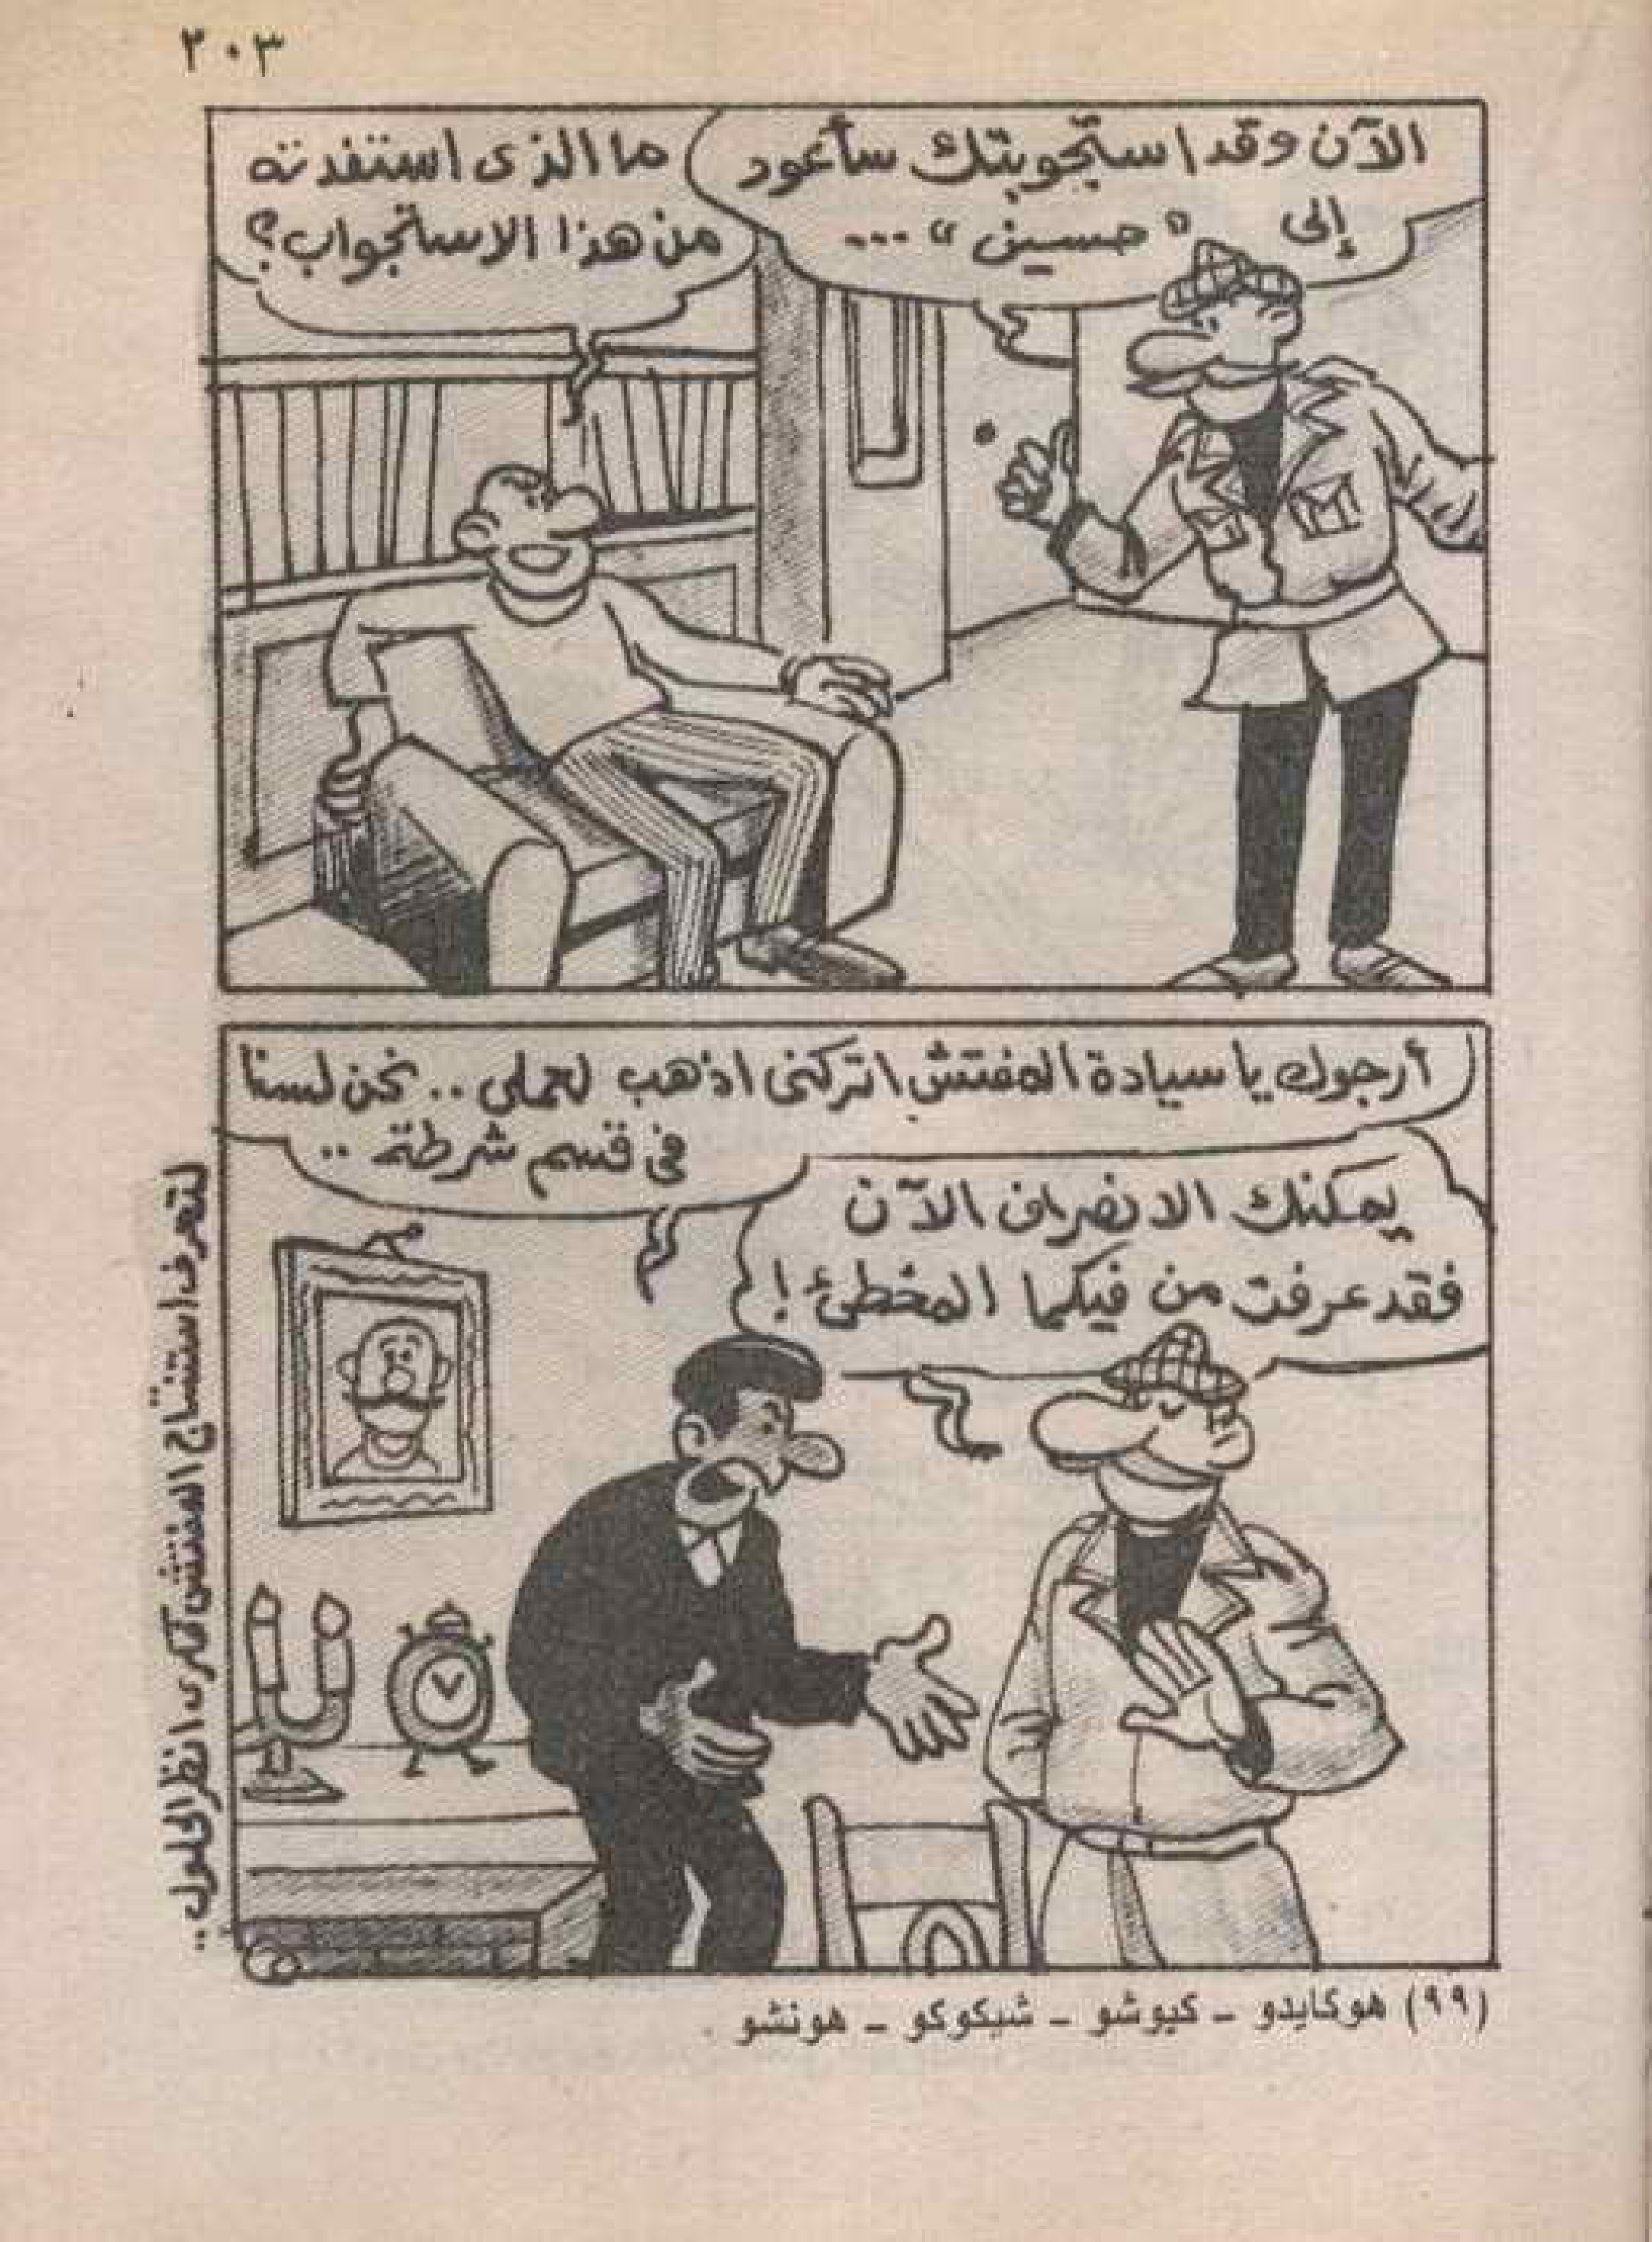 ٢٠٣
الآن وقد استجوبتك سأعود
إلى "حسين" ...
ما الذى استفدته
من هذا الاستجواب؟
أرجوك يا سيادة المفتش اتركنى اذهب لعملى .. نحن لسنا
فى قسم شرطة ..
يمكنك الانصراف الآن
فقد عرفت من فيكما المخطئ!
لتعرف استنتاج المفتش فكرى انظر الحلول ..
(٩٩) هوكايدو - كيوشو - شيكوكو - هونشو